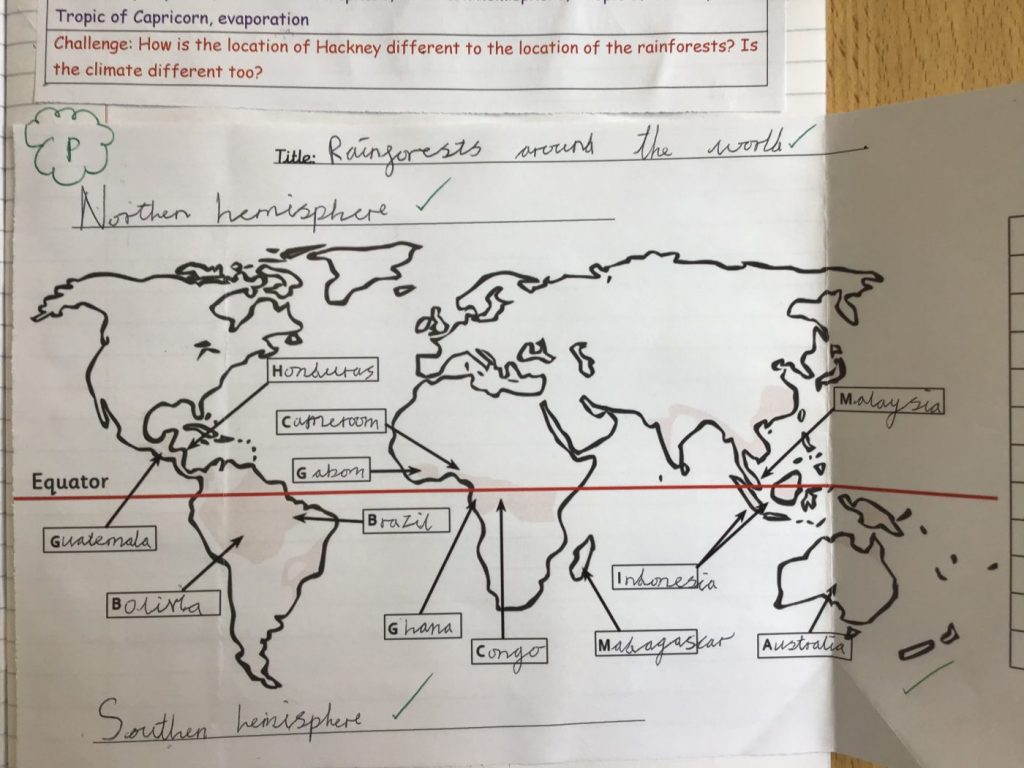 Tropic of Capricorn, evaporation
Challenge: How is the location of Hackney different to the location of the rainforests? Is
the climate different too?
P
Title: Rainforests around the world
Northen hemisphere
Honduras
Malaysia
Cameroom
Gabon
Equator
Brazil
Guatemala
Indonesia
Bolivia
Ghana
Congo
Madagaskar
Australia
Southen hemisphere